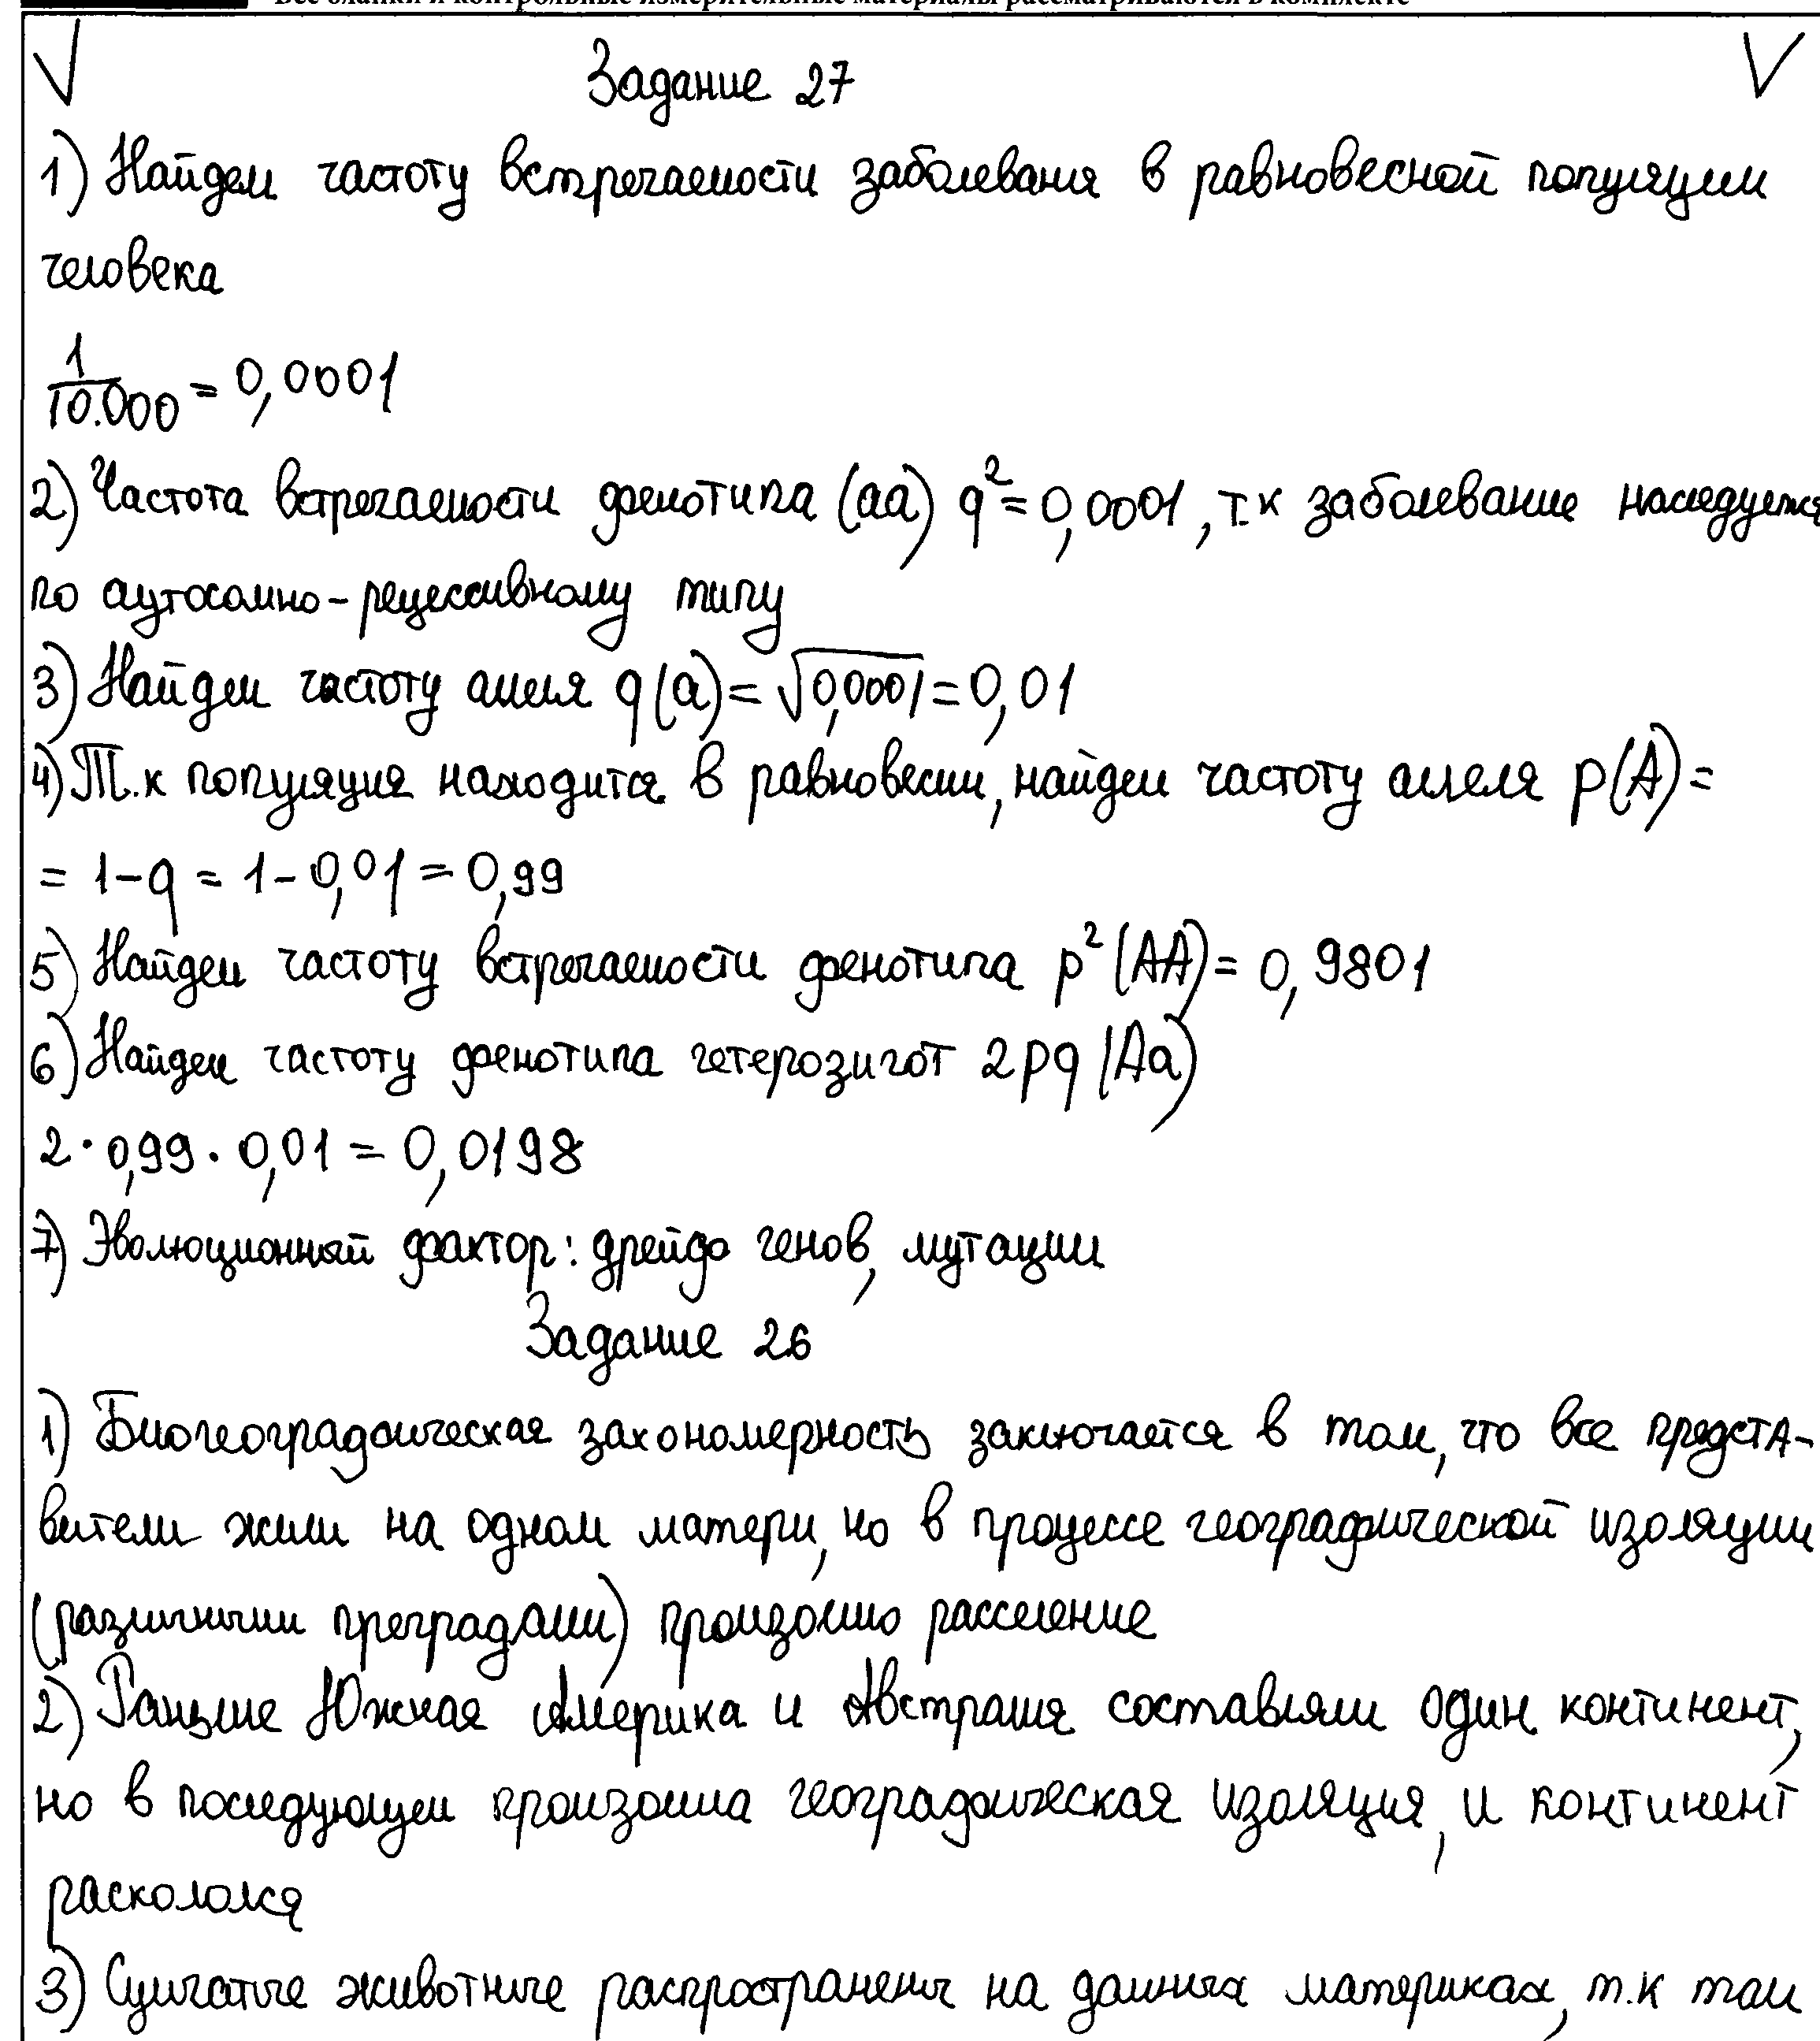 Все бланки и контрольные измерительные материалы рассматриваются в комплекте
Задание 27
1) Найдем частоту встречаемости заболеваня в равновесной популяции
человека
1/10.000 = 0,0001
2) Частота встречаемости фенотипа (aa) q²=0,0001, т.к заболевание наследуется
по аутосомно-рецессивному типу
3) Найдем частоту аллеля q(a)=√0,0001=0,01
4) Т.к популяция находится в равновесии, найдем частоту аллеля p(A)=
= 1-q = 1-0,01=0,99
5) Найдем частоту встречаемости фенотипа p²(AA)= 0,9801
6) Найдем частоту фенотипа гетерозигот 2pq (Aa)
2·0,99·0,01 = 0,0198
7) Эволюционный фактор: дрейф генов, мутации
Задание 26
1) Биогеографическая закономерность заключается в том, что все предста-
вители жили на одном матери, но в процессе географической изоляции
(различными преградами) произошло расселение
2) Раньше Южная Америка и Австралия составляли один континент,
но в последующем произошла географическая изоляция, и континент
раскололся
3) Сумчатые животные распространены на данных материках, т.к там